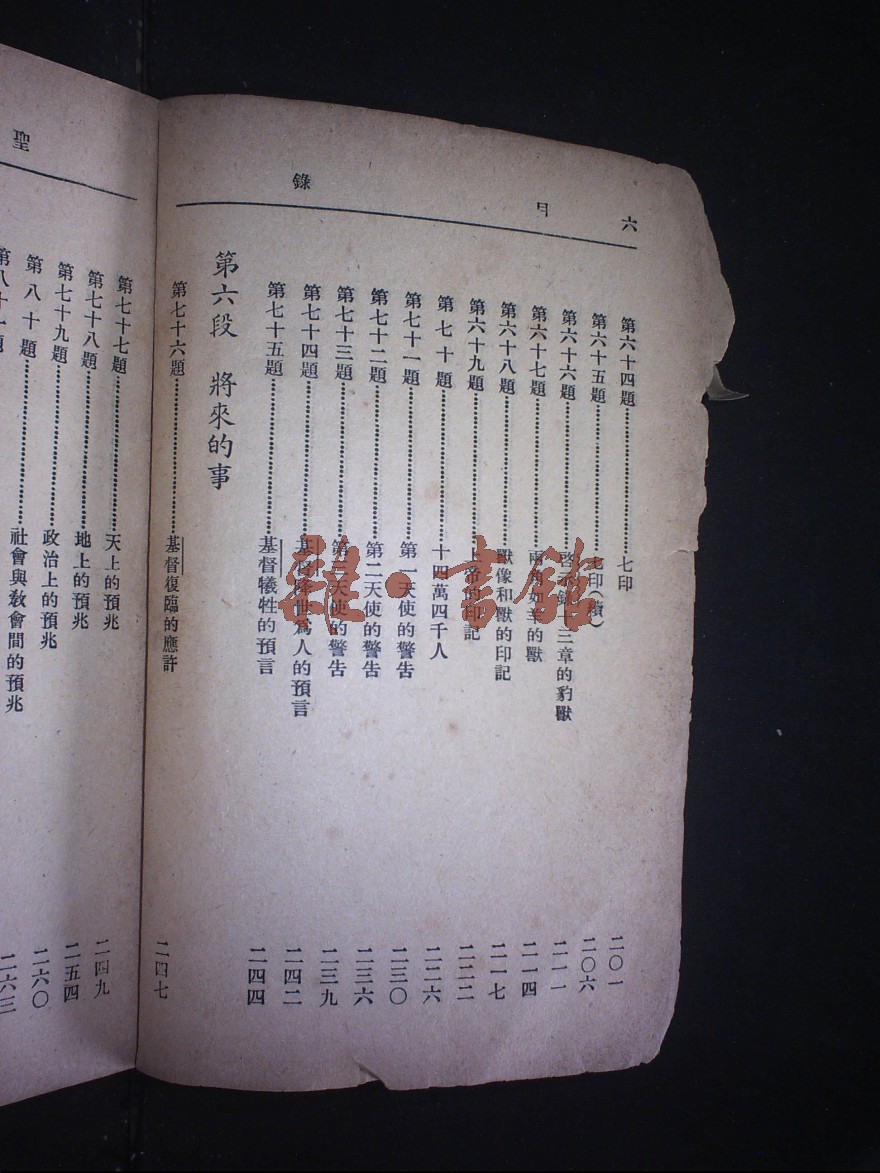 六 目 錄
第六十四題 七印 二〇一
第六十五題 七印(續) 二〇六
第六十六題 啓示錄十三章的豹獸 二一一
第六十七題 兩角如羊的獸 二一四
第六十八題 獸像和獸的印記 二一七
第六十九題 上帝的印記 二二二
第七十題 十四萬四千人 二二六
第七十一題 第一天使的警告 二三〇
第七十二題 第二天使的警告 二三六
第七十三題 第三天使的警告 二三九
第七十四題 基督降世爲人的預言 二四二
第七十五題 基督犧牲的預言 二四四
第六段 將來的事
第七十六題 基督復臨的應許 二四七
聖
第七十七題 天上的預兆 二四九
第七十八題 地上的預兆 二五四
第七十九題 政治上的預兆 二六〇
第八十題 社會與教會間的預兆 二六三
第八十一題
雜·書館